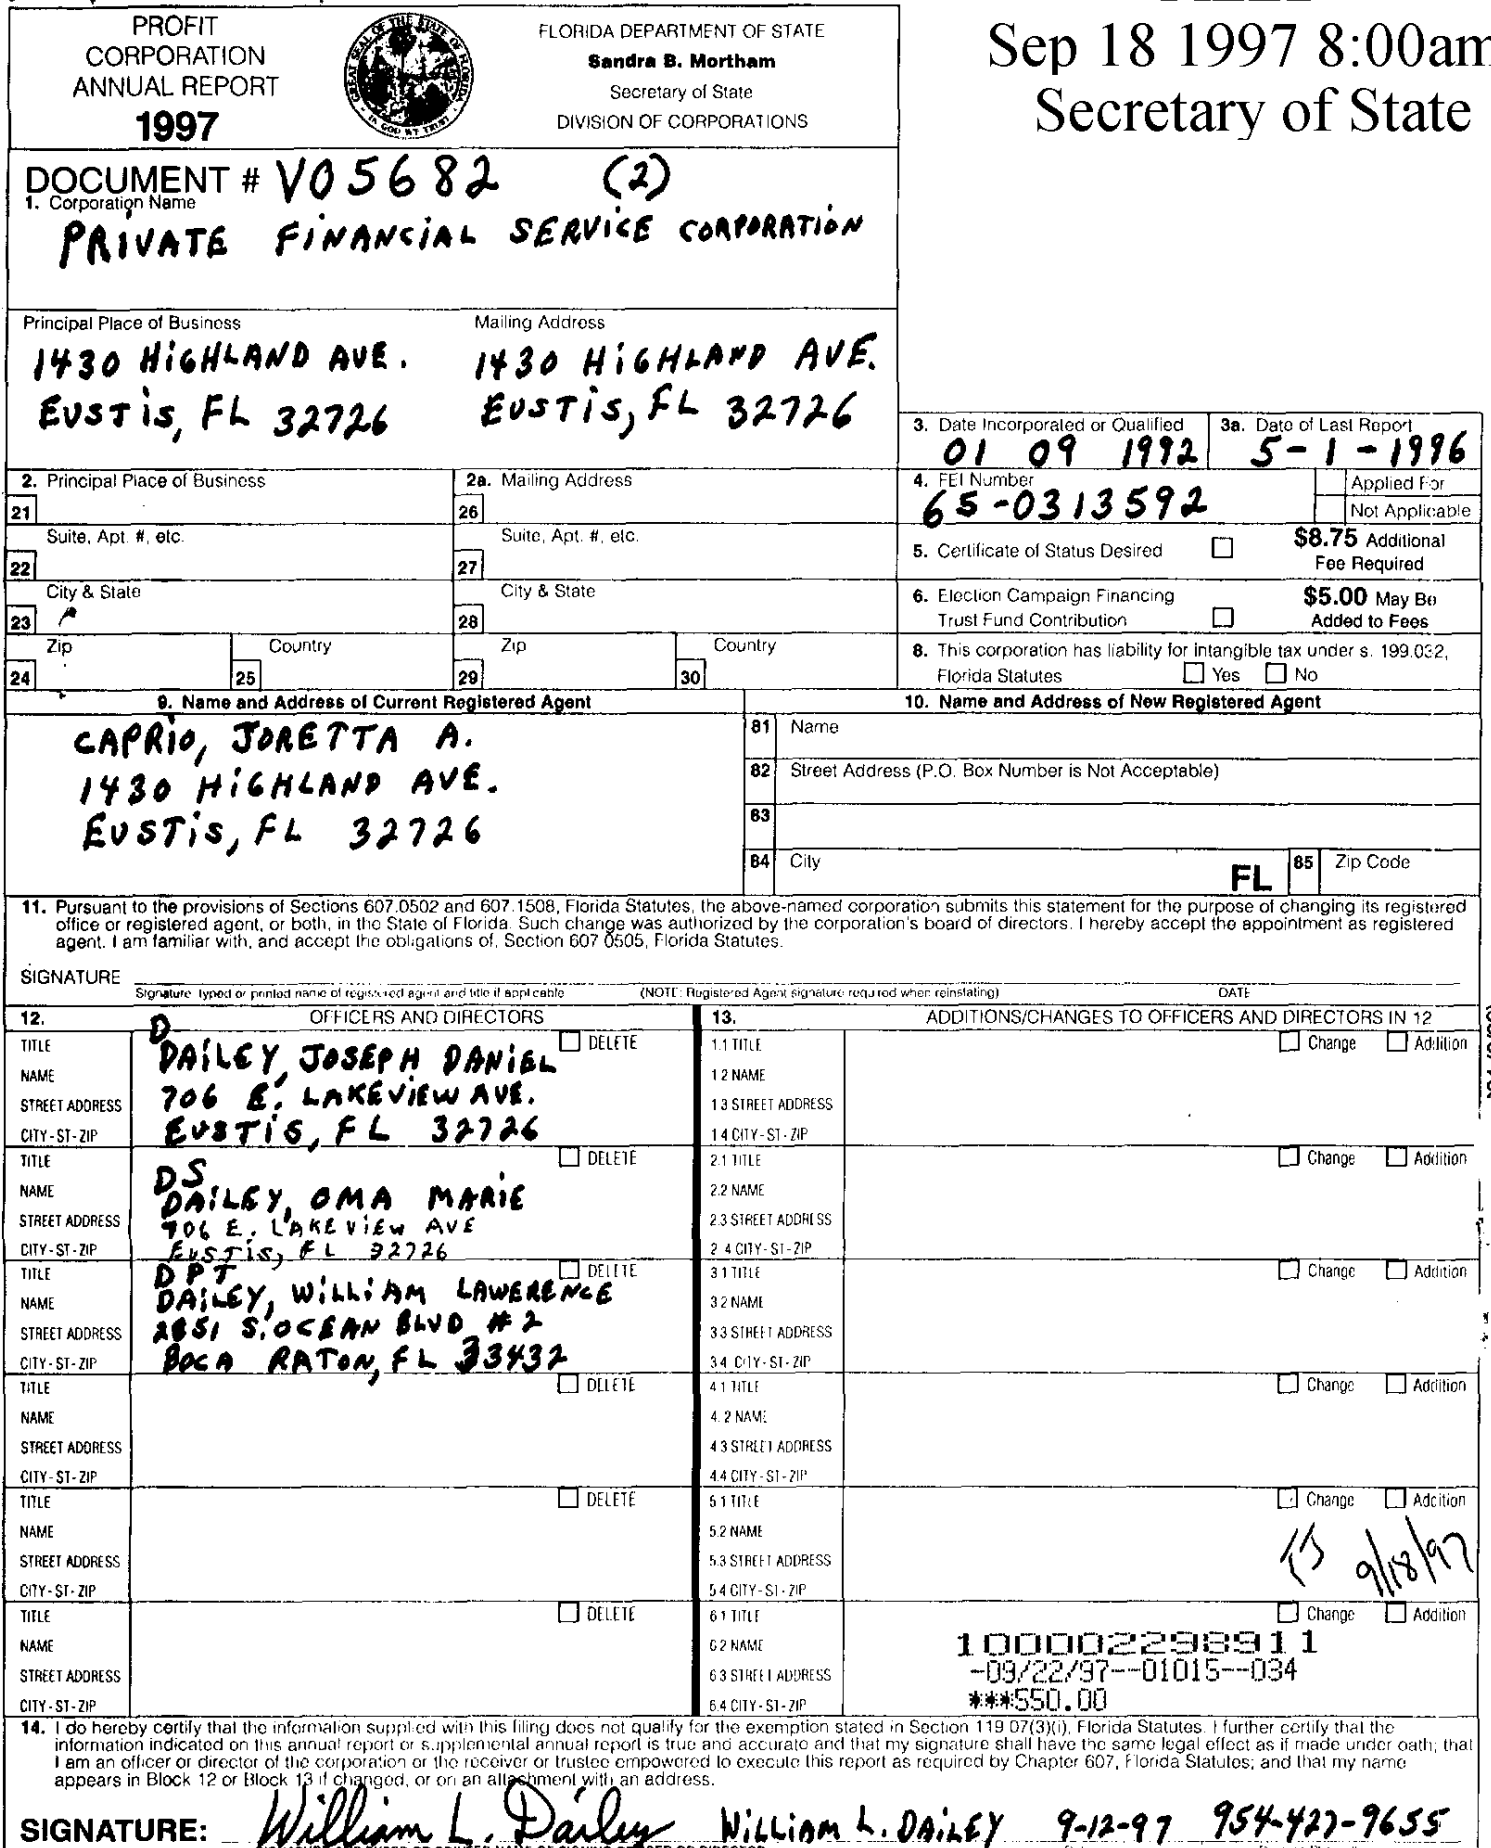 PROFIT
CORPORATION
ANNUAL REPORT
1997
GREAT SEAL OF THE STATE OF FLORIDA
IN GOD WE TRUST
FLORIDA DEPARTMENT OF STATE
Sandra B. Mortham
Secretary of State
DIVISION OF CORPORATIONS
Sep 18 1997 8:00am
Secretary of State
DOCUMENT # V05682 (2)
1. Corporation Name
PRIVATE FINANCIAL SERVICE CORPORATION
Principal Place of Business
1430 HIGHLAND AVE.
EUSTIS, FL 32726
Mailing Address
1430 HIGHLAND AVE.
EUSTIS, FL 32726
3. Date Incorporated or Qualified
01 09 1992
3a. Date of Last Report
5-1-1996
2. Principal Place of Business
21
2a. Mailing Address
26
4. FEI Number
65-0313592
Applied For
Not Applicable
Suite, Apt. #, etc.
22
Suite, Apt. #, etc.
27
5. Certificate of Status Desired
$8.75 Additional
Fee Required
City & State
23
City & State
28
6. Election Campaign Financing
Trust Fund Contribution
$5.00 May Be
Added to Fees
Zip
24
Country
25
Zip
29
Country
30
8. This corporation has liability for intangible tax under s. 199.032,
Florida Statutes Yes No
9. Name and Address of Current Registered Agent
CAPRIO, JORETTA A.
1430 HIGHLAND AVE.
EUSTIS, FL 32726
10. Name and Address of New Registered Agent
81 Name
82 Street Address (P.O. Box Number is Not Acceptable)
83
84 City FL 85 Zip Code
11. Pursuant to the provisions of Sections 607.0502 and 607.1508, Florida Statutes, the above-named corporation submits this statement for the purpose of changing its registered
office or registered agent, or both, in the State of Florida. Such change was authorized by the corporation's board of directors. I hereby accept the appointment as registered
agent. I am familiar with, and accept the obligations of, Section 607.0505, Florida Statutes.
SIGNATURE
Signature typed or printed name of registered agent and title if applicable (NOTE: Registered Agent signature required when reinstating) DATE
12. OFFICERS AND DIRECTORS
13. ADDITIONS/CHANGES TO OFFICERS AND DIRECTORS IN 12
TITLE D DELETE
NAME DAILEY, JOSEPH DANIEL
STREET ADDRESS 706 E. LAKEVIEW AVE.
CITY-ST-ZIP EUSTIS, FL 32726
1.1 TITLE Change Addition
1.2 NAME
1.3 STREET ADDRESS
1.4 CITY-ST-ZIP
TITLE DS DELETE
NAME DAILEY, OMA MARIE
STREET ADDRESS 706 E. LAKEVIEW AVE
CITY-ST-ZIP EUSTIS, FL 32726
2.1 TITLE Change Addition
2.2 NAME
2.3 STREET ADDRESS
2.4 CITY-ST-ZIP
TITLE DPT DELETE
NAME DAILEY, WILLIAM LAWERENCE
STREET ADDRESS 2851 S. OCEAN BLVD #2
CITY-ST-ZIP BOCA RATON, FL 33432
3.1 TITLE Change Addition
3.2 NAME
3.3 STREET ADDRESS
3.4 CITY-ST-ZIP
TITLE DELETE
NAME
STREET ADDRESS
CITY-ST-ZIP
4.1 TITLE Change Addition
4.2 NAME
4.3 STREET ADDRESS
4.4 CITY-ST-ZIP
TITLE DELETE
NAME
STREET ADDRESS
CITY-ST-ZIP
5.1 TITLE Change Addition
5.2 NAME
5.3 STREET ADDRESS
5.4 CITY-ST-ZIP
9/18/97
TITLE DELETE
NAME
STREET ADDRESS
CITY-ST-ZIP
6.1 TITLE Change Addition
6.2 NAME
6.3 STREET ADDRESS
6.4 CITY-ST-ZIP
100002298911
-09/22/97--01015--034
***550.00
14. I do hereby certify that the information supplied with this filing does not qualify for the exemption stated in Section 119.07(3)(i), Florida Statutes. I further certify that the
information indicated on this annual report or supplemental annual report is true and accurate and that my signature shall have the same legal effect as if made under oath; that
I am an officer or director of the corporation or the receiver or trustee empowered to execute this report as required by Chapter 607, Florida Statutes; and that my name
appears in Block 12 or Block 13 if changed, or on an attachment with an address.
SIGNATURE: William L. Dailey WILLIAM L. DAILEY 9-12-97 954-427-9655